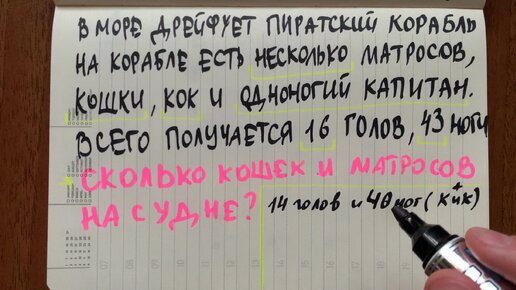 В МОРЕ ДРЕЙФУЕТ ПИРАТСКИЙ КОРАБЛЬ
НА КОРАБЛЕ ЕСТЬ НЕСКОЛЬКО МАТРОСОВ,
КОШКИ, КОК И ОДНОНОГИЙ КАПИТАН.
ВСЕГО ПОЛУЧАЕТСЯ 16 ГОЛОВ, 43 НОГИ
СКОЛЬКО КОШЕК И МАТРОСОВ
НА СУДНЕ? 14 голов и 40 ног (К и К)